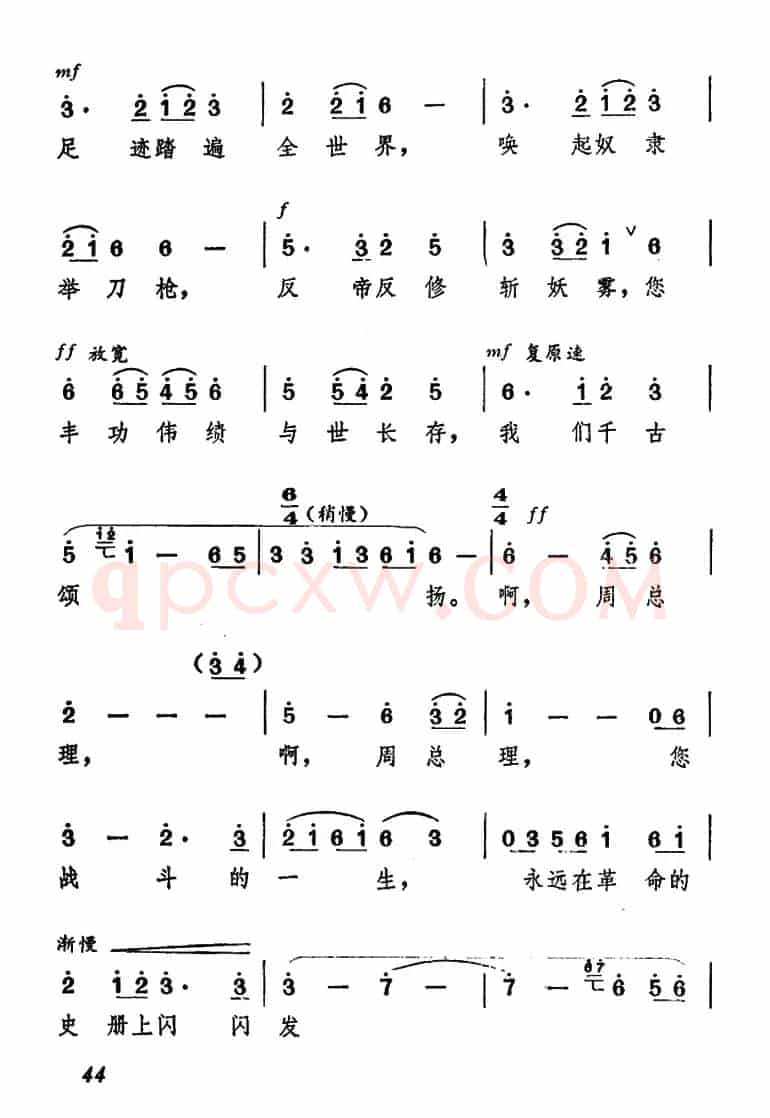 mf
3· 2 1 2 3 | 2 2 1 6 — | 3· 2 1 2 3 |
足 迹踏 遍 全 世 界, 唤 起奴 隶
f
2 1 6 6 — | 5· 3 2 5 | 3 3 2 1 ∨ 6 |
举 刀 枪, 反 帝反 修 斩 妖 雾,您
ff 放宽 mf 复原速
6 6 5 4 5 6 | 5 5 4 2 5 | 6· 1 2 3 |
丰 功 伟 绩 与 世 长 存, 我 们千 古
6/4 (稍慢) 4/4 ff
5 1 2 1 — 6 5 | 3 3 1 3 6 1 6 — | 6 — 4 5 6 |
颂 扬。啊, 周 总
qpcxw.COM
(3 4)
2 — — — | 5 — 6 3 2 | 1 — — 0 6 |
理, 啊, 周 总 理, 您
3 — 2· 3 | 2 1 6 1 6 3 | 0 3 5 6 1 6 1 |
战 斗 的 一 生, 永远在革 命的
渐慢
2 1 2 3· 3 | 3 — 7 — | 7 — 6 7 6 5 6 |
史 册上闪 闪 发
44